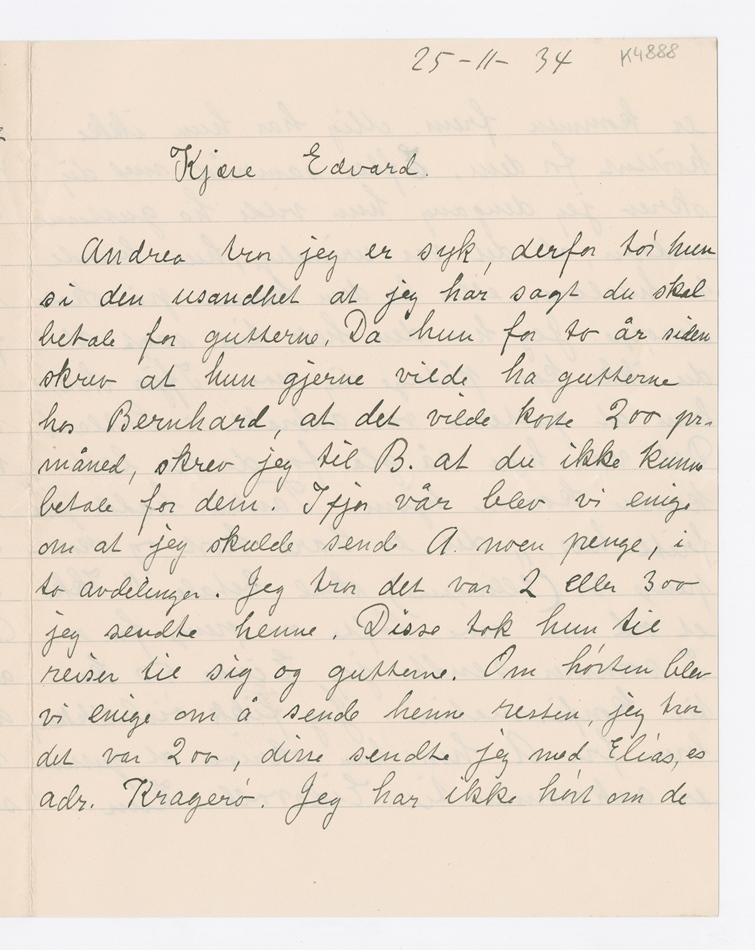 25-11- 34 K4888
Kjære Edvard.
Andrea tror jeg er syk, derfor tør hun
si den usandhet at jeg har sagt du skal
betale for gutterne. Da hun for to år siden
skrev at hun gjerne vilde ha gutterne
hos Bernhard, at det vilde koste 200 pr.
måned, skrev jeg til B. at du ikke kunne
betale for dem. Ifjor vår blev vi enige
om at jeg skulde sende A. noen penge, i
to avdelinger. Jeg tror det var 2 eller 300
jeg sendte henne. Disse tok hun til
reiser til sig og gutterne. Om høsten blev
vi enige om å sende henne resten, jeg tror
det var 200, disse sendte jeg med Elias,es
adr. Kragerø. Jeg har ikke hørt om de